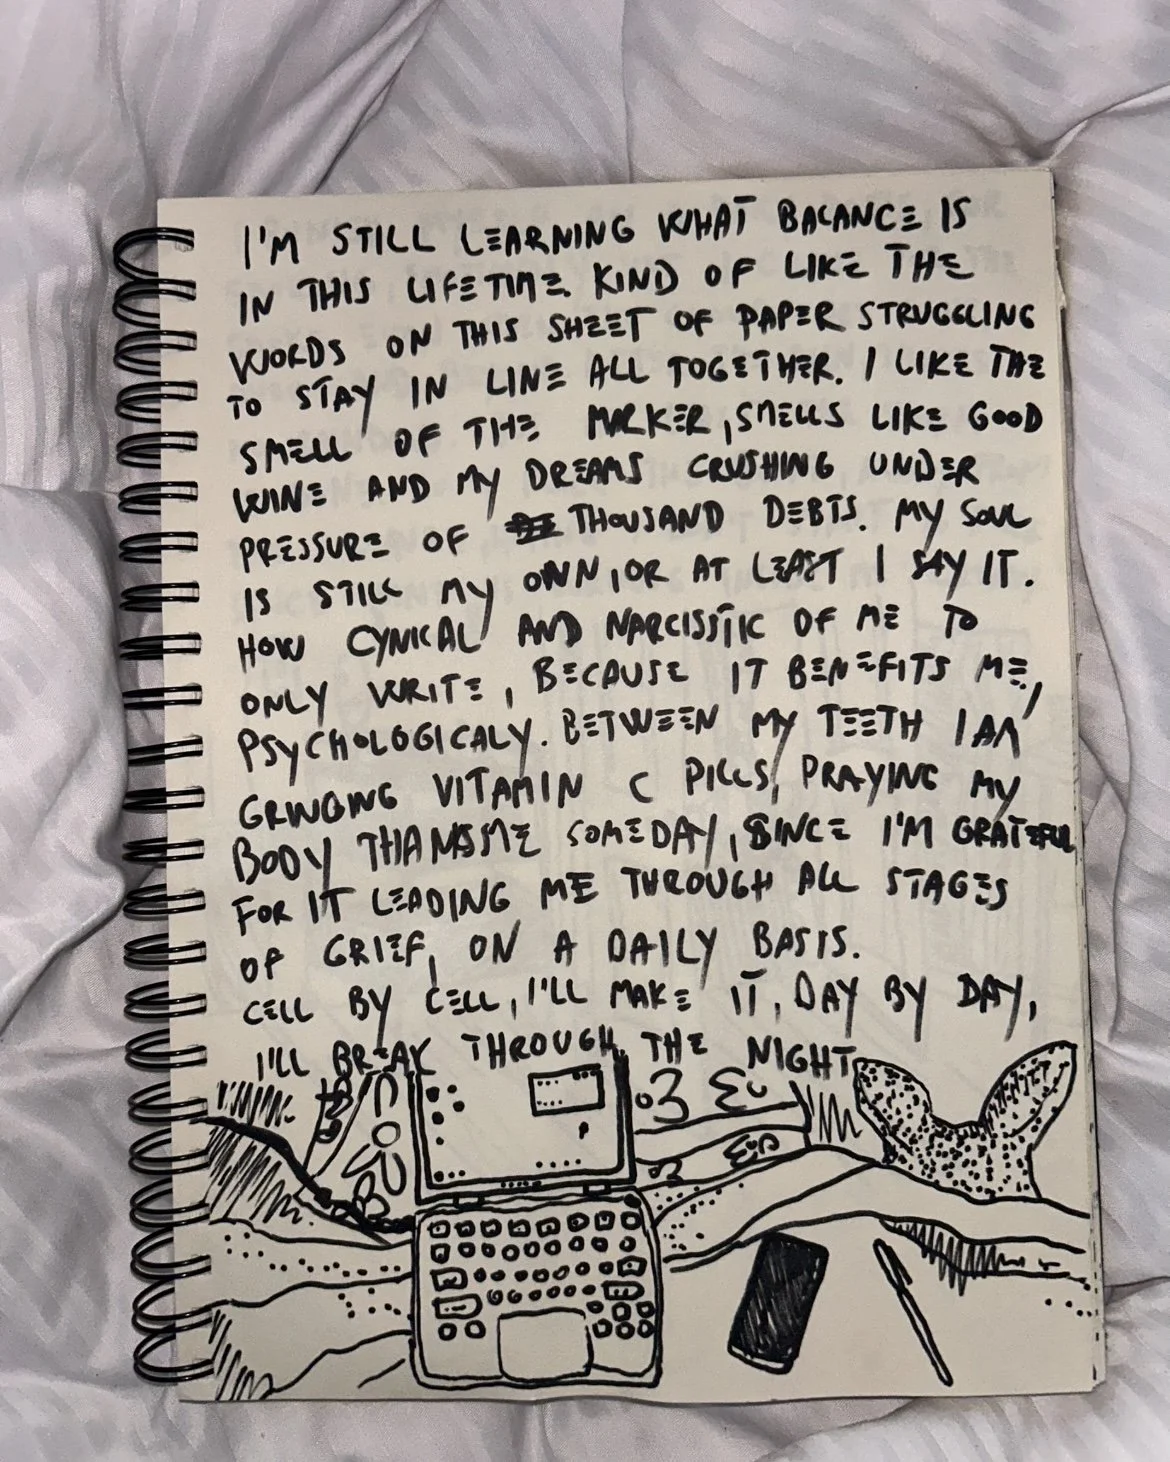 I'M STILL LEARNING WHAT BALANCE IS
IN THIS LIFETIME. KIND OF LIKE THE
WORDS ON THIS SHEET OF PAPER STRUGGLING
TO STAY IN LINE ALL TOGETHER. I LIKE THE
SMELL OF THE MARKER, SMELLS LIKE GOOD
WINE AND MY DREAMS CRUSHING UNDER
PRESSURE OF THOUSAND DEBTS. MY SOUL
IS STILL MY OWN, OR AT LEAST I SAY IT.
HOW CYNICAL AND NARCISSTIC OF ME TO
ONLY WRITE, BECAUSE IT BENEFITS ME,
PSYCHOLOGICALY. BETWEEN MY TEETH I AM
GRINGING VITAMIN C PILLS, PRAYING MY
BODY THANKS ME SOMEDAY, SINCE I'M GRATEFUL
FOR IT LEADING ME THROUGH ALL STAGES
OF GRIEF, ON A DAILY BASIS.
CELL BY CELL, I'LL MAKE IT, DAY BY DAY,
I'LL BREAK THROUGH THE NIGHT